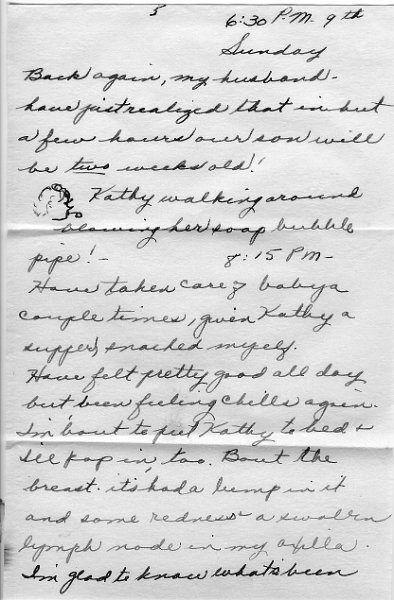 5
6:30 P.M. 9th
Sunday
Back again, my husband -
have just realized that in but
a few hours our son will
be two weeks old!
Kathy walking around
blowing her soap bubble
pipe! -
8:15 PM -
Have taken care of baby a
couple times, given Kathy a
supper, snacked myself.
Have felt pretty good all day
but been feeling chills again.
I'm bout to put Kathy to bed &
I'll pop in, too. Bout the
breast - it's had a lump in it
and some redness & a swollen
lymph node in my axilla.
I'm glad to know what's been